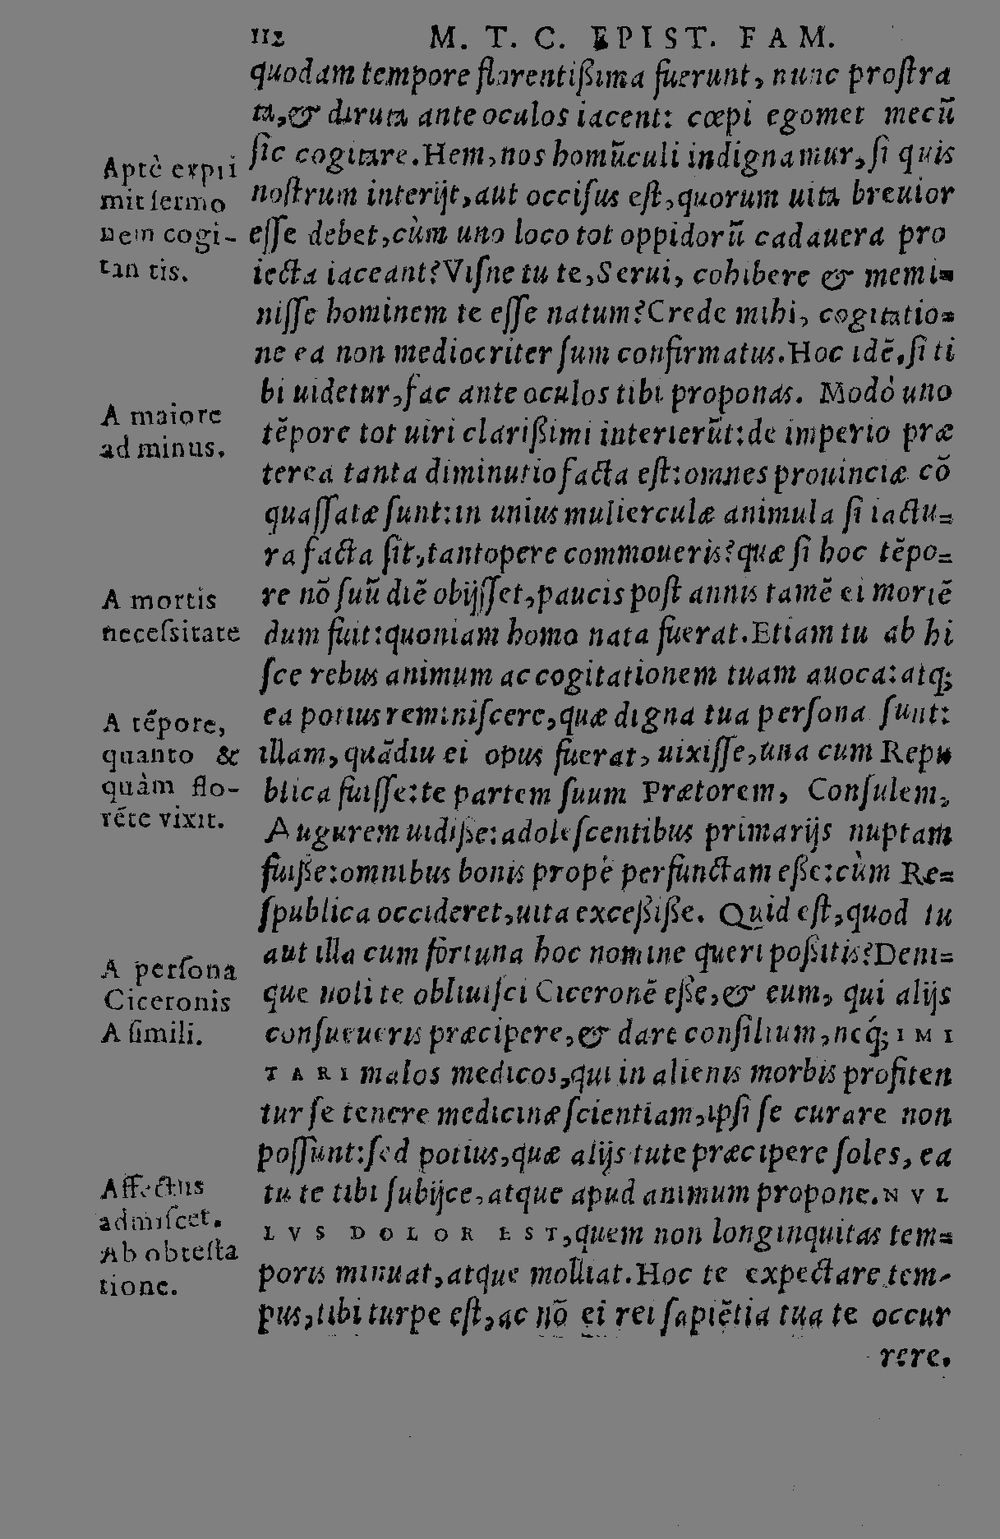 112 M. T. C. EPIST. FAM.
quodam tempore florentißima fuerunt, nunc proſtra
ta, & diruta ante oculos iacent: cœpi egomet mecū
ſic cogitare. Hem, nos homūculi indignamur, ſi quis
noſtrum interijt, aut occiſus eſt, quorum uita breuior
eſſe debet, cùm uno loco tot oppidorū cadauera pro
iecta iaceant? Viſne tu te, Serui, cohibere & memi=
niſſe hominem te eſſe natum? Crede mihi, cogitatio=
ne ea non mediocriter ſum confirmatus. Hoc idē, ſi ti
bi uidetur, fac ante oculos tibi proponas. Modò uno
tēpore tot uiri clarißimi interierūt: de imperio præ
terea tanta diminutio facta eſt: omnes prouinciæ cō
quaſſatæ ſunt: in unius mulierculæ animula ſi iactu=
ra facta ſit, tantopere commoueris? quæ ſi hoc tēpo=
re nō ſuū diē obijſſet, paucis poſt annis tamē ei moriē
dum fuit: quoniam homo nata fuerat. Etiam tu ab hi
ſce rebus animum ac cogitationem tuam auoca: atq;
ea potius reminiſcere, quæ digna tua perſona ſunt:
illam, quādiu ei opus fuerat, uixiſſe, una cum Repu
blica fuiſſe: te partem ſuum Prætorem, Conſulem,
Augurem uidiße: adoleſcentibus primarijs nuptam
fuiße: omnibus bonis propè perfunctam eße: cùm Re=
ſpublica occideret, uita exceßiße. Quid eſt, quod tu
aut illa cum fortuna hoc nomine queri poßitis? Deni=
que noli te obliuiſci Ciceronē eße, & eum, qui alijs
conſueueris præcipere, & dare conſilium, neq́; IMI
TARI malos medicos, qui in alienis morbis profiten
tur ſe tenere medicinæ ſcientiam, ipſi ſe curare non
poſſunt: ſed potius, quæ alijs tute præcipere ſoles, ea
tu te tibi ſubijce, atque apud animum propone. NVL
LVS DOLOR EST, quem non longinquitas tem=
poris minuat, atque molliat. Hoc te expectare tem-
pus, tibi turpe eſt, ac nō ei rei ſapiētia tua te occur
rere.
Aptè expri
mit ſermo
nem cogi-
tan tis.
A maiore
ad minus.
A mortis
neceſsitate
A tēpore,
quanto &
quàm flo-
rēte vixit.
A perſona
Ciceronis
A ſimili.
Affectus
admiſcet.
Ab obteſta
tione.